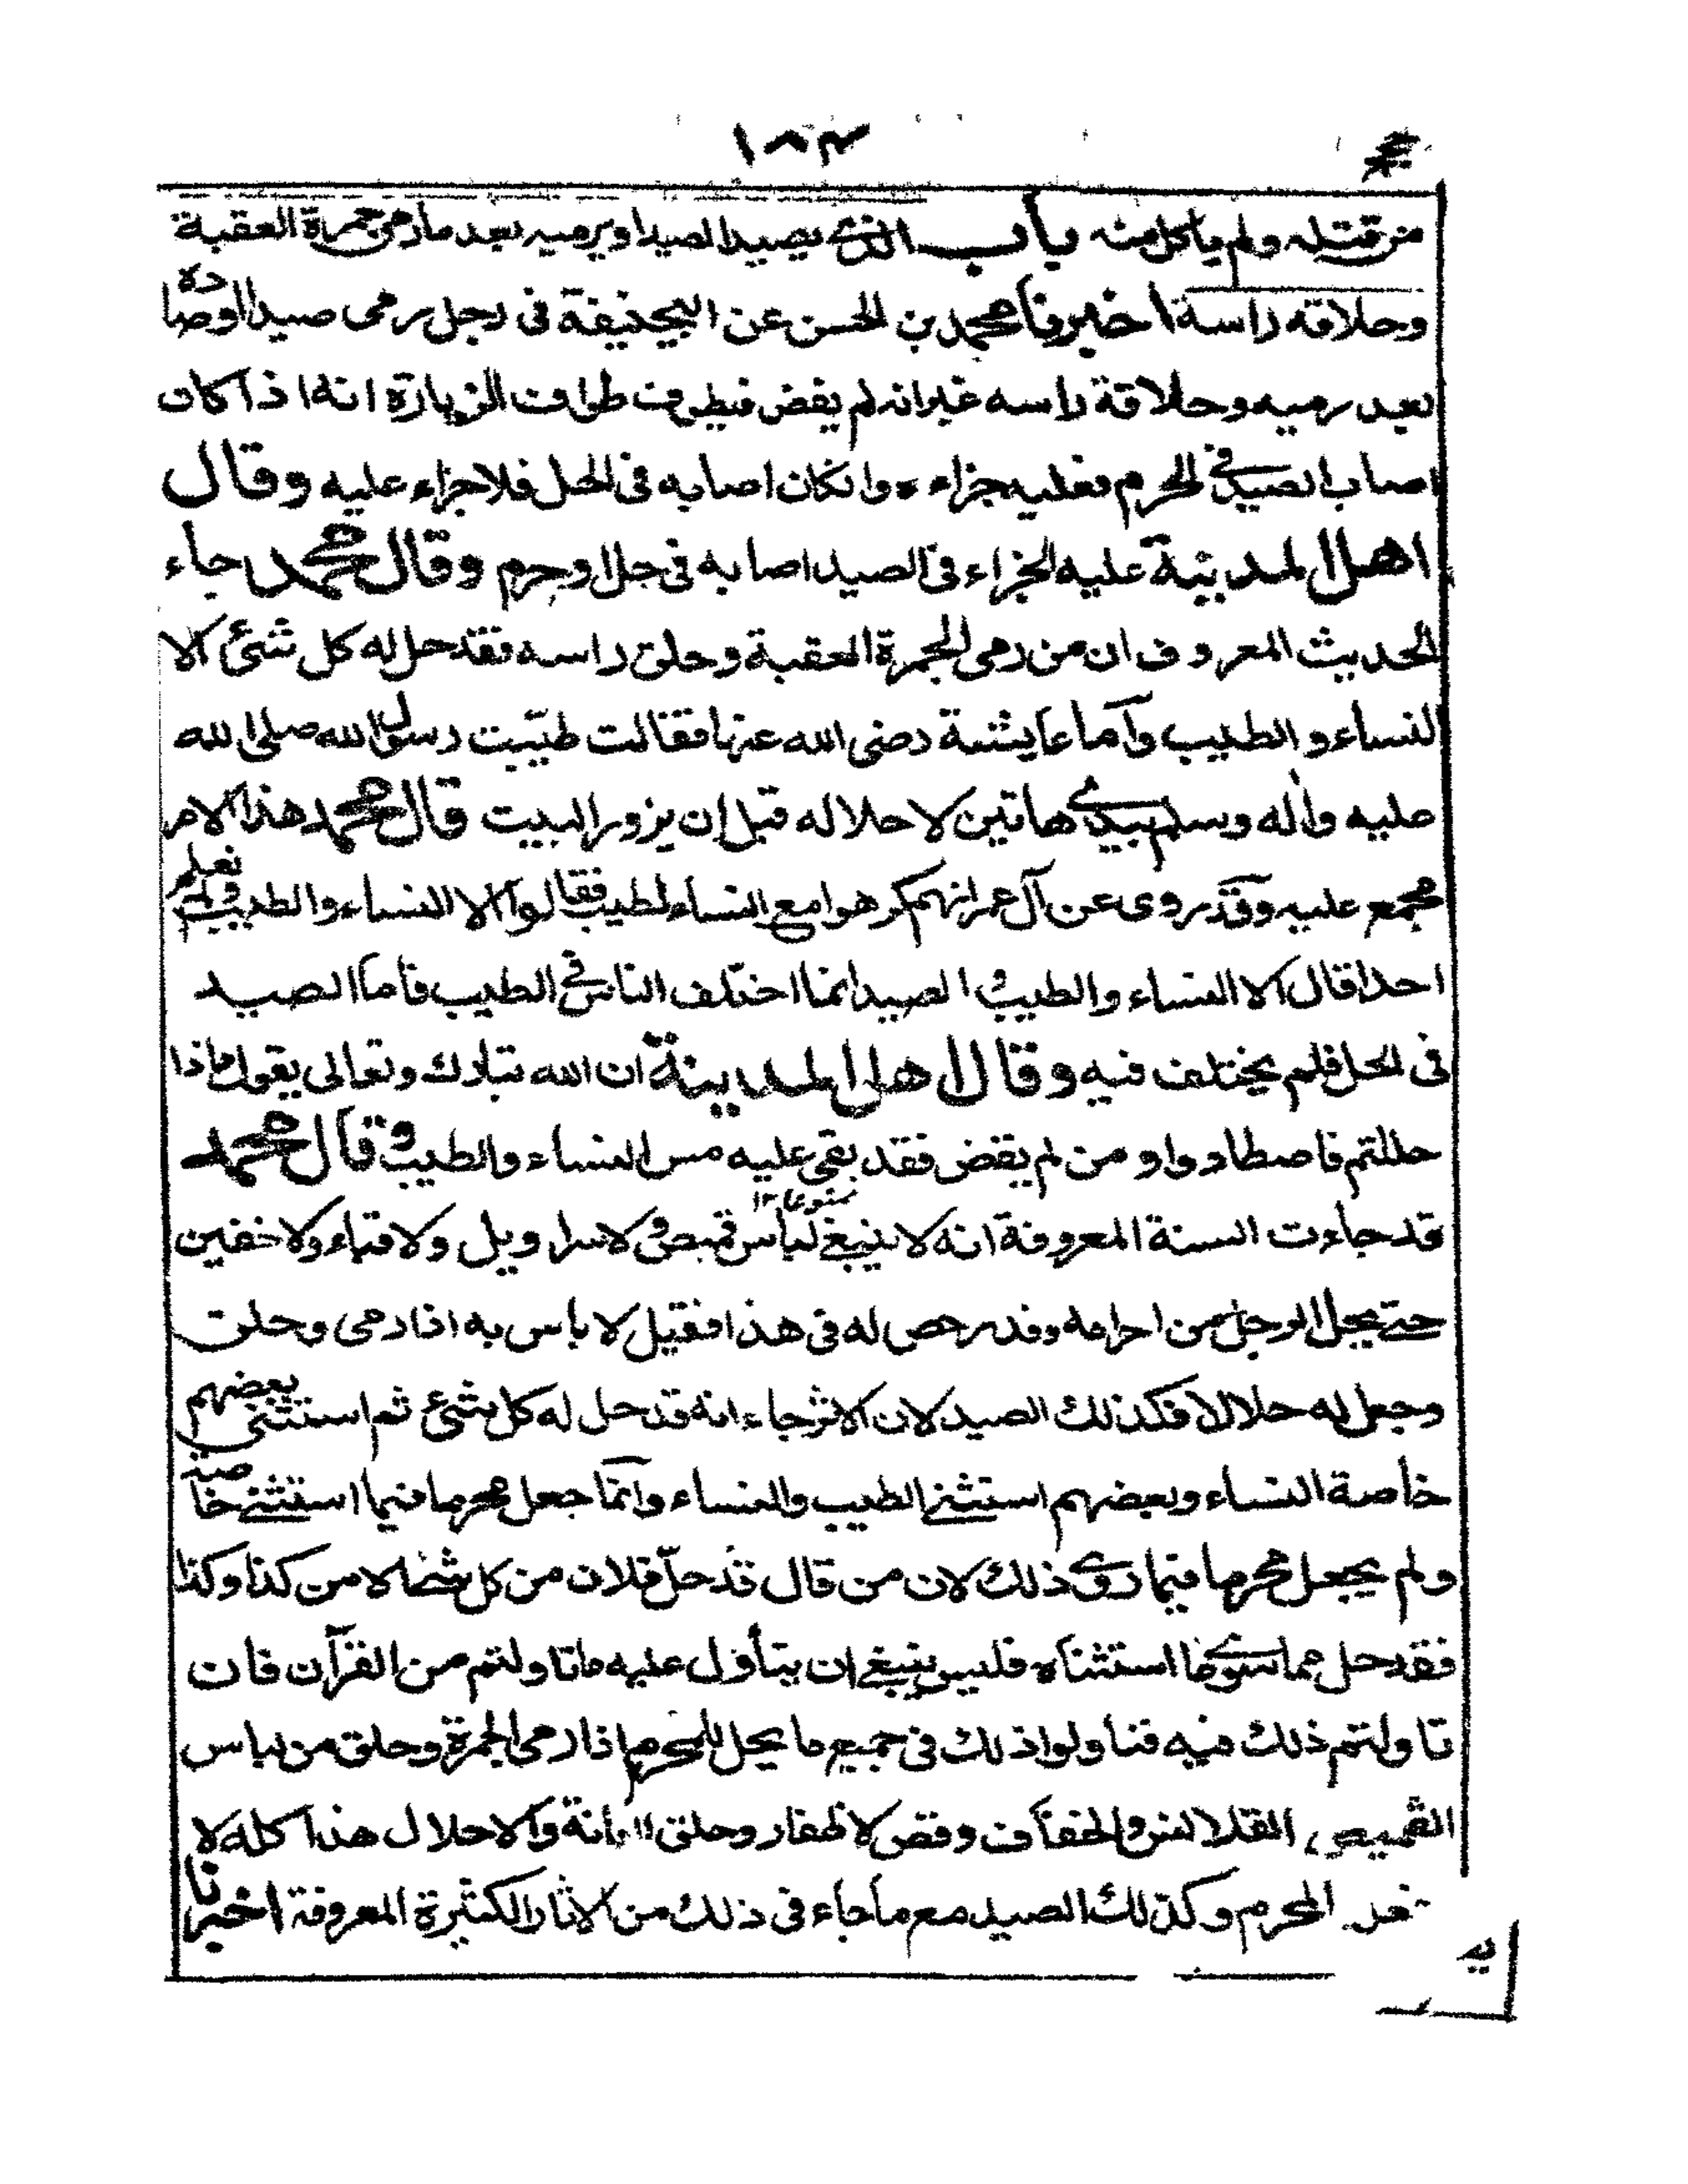 ١٨٣
من قتله ولم ياكل منه باب الذي يصيد الصيد او يرميه بعد ما رمى جمرة العقبة
وحلاقه راسة اخبرنا محمد بن الحسن عن ابيحنيفة فى رجل رمى صيدا او صاده
بعد رميه وحلاقة راسه غير انه لم يفض فيطوف طواف الزيارة انه اذا كان
اصاب الصيد فى الحرم فعليه جزاءه وانكان اصابه فى الحل فلا جزاء عليه وقال
اهل المدينة عليه الجزاء فى الصيد اصابه فى حل او حرم وقال محمد جاء
الحديث المعروف ان من رمى الجمرة العقبة وحلق راسه فقد حل له كل شئ الا
النساء والطيب وآما عايشة رضى الله عنها فقالت طيّبت رسول الله صلى الله
عليه واٰله وسلم بيدي هاتين لاحلاله قبل ان يزور البيت قال محمد هذا الامر
مجمع عليه وقد روى عن آل عمر انهم كرهوا مع النساء الطيب فقالوا الا النساء والطيب ولم نعلم
احدا قال الا النساء والطيب والصيد انما اختلف الناس فى الطيب فأما الصيد
فى الحل فلم يختلف فيه وقال اهل المدينة ان الله تبارك وتعالى يقول واذا
حللتم فاصطادوا ومن لم يفض فقد بقى عليه مس النساء والطيب وقال محمد
قد جاءت السنة المعروفة انه لا ينبغى لباس قميص ولا سراويل ولا قباء ولا خفين
حتى يحل الرجل من احرامه وقد رخص له فى هذا فقيل لا باس به اذا رمى وحلق
وجعل له حلالا فكذلك الصيد لان الاثر جاء انه قد حل له كل شئ ثم استثنى بعضهم
خاصة النساء وبعضهم استثنى الطيب والنساء وانما جعل محرما فيما استثنى خاصة
ولم يجعل محرما فيما روى ذلك لان من قال قد حل فلان من كل شئ الا من كذا وكذا
فقد حل مما سوى ما استثناه فليس ينبغى ان يتأول عليه ما تاولتم من القرآن فان
تاولتم ذلك فيه فتاولوا ذلك فى جميع ما يحل للمحرم اذا رمى الجمرة وحلق من لباس
القميص القلانس والخفاف وقص الاظفار وحلق العانة والاحلال هذا كله لا
المحرم وكذلك الصيد مع ما جاء فى ذلك من الاثار الكثيرة المعروفة اخبرنا